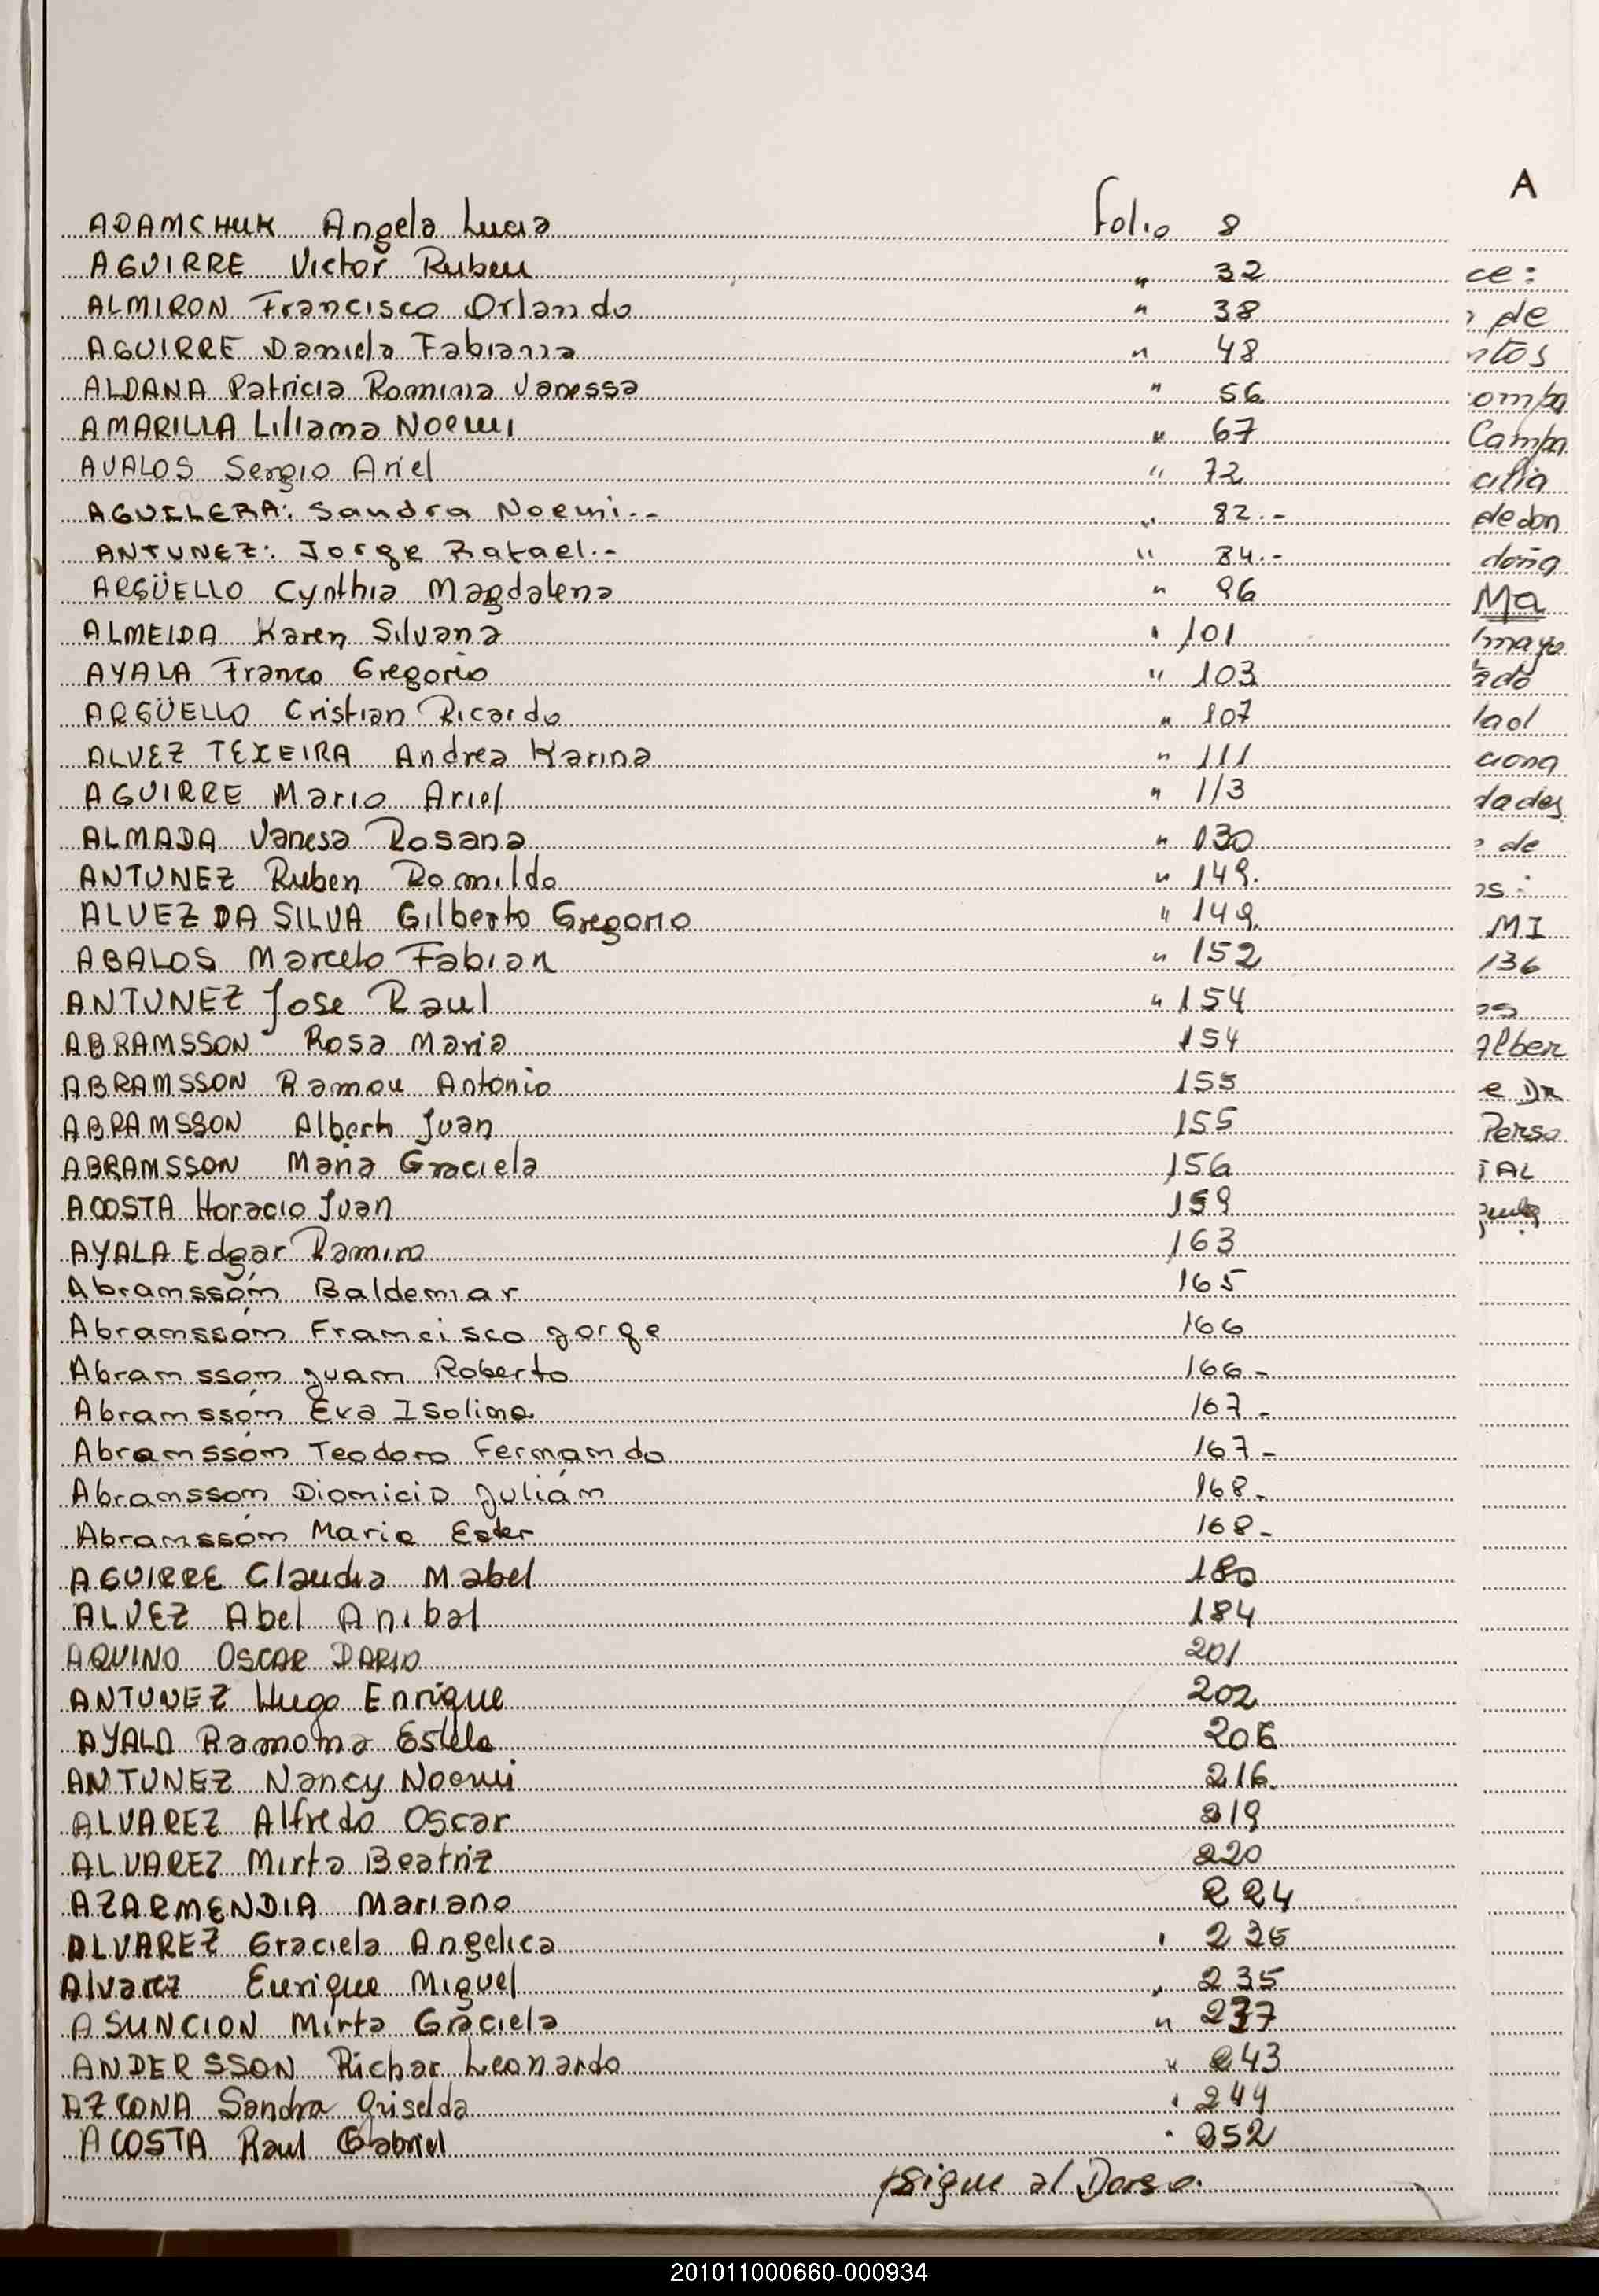 A
ADAMCHUK Angela Lucia Folio 8
AGUIRRE Victor Ruben " 32
ALMIRON Francisco Orlando " 38
AGUIRRE Daniela Fabiana " 48
ALDANA Patricia Romina Vanessa " 56
AMARILLA Liliana Noemi " 67
AVALOS Sergio Ariel " 72
AGUILERA: Sandra Noemi.- " 82.-
ANTUNEZ: Jorge Rafael.- " 84.-
ARGÜELLO Cynthia Magdalena " 96
ALMEIDA Karen Silvana " 101
AYALA Franco Gregorio " 103
ARGÜELLO Cristian Ricardo " 107
ALVEZ TEXEIRA Andrea Karina " 111
AGUIRRE Mario Ariel " 113
ALMADA Vanesa Rosana " 130
ANTUNEZ Ruben Romildo " 149.
ALVEZ DA SILVA Gilberto Gregorio " 149.
ABALOS Marcelo Fabian " 152
ANTUNEZ Jose Raul " 154
ABRAMSSON Rosa Maria 154
ABRAMSSON Ramon Antonio 155
ABRAMSSON Alberto Juan 155
ABRAMSSON Maria Graciela 156
ACOSTA Horacio Juan 159
AYALA Edgar Ramiro 163
Abramssón Baldemar 165
Abramssón Francisco Jorge 166
Abramsson Juan Roberto 166-
Abramssón Eva Isolina 167-
Abramssón Teodoro Fernando 167-
Abramsson Dionicio Julián 168-
Abramssón Maria Ester 168-
AGUIRRE Claudia Mabel 180
ALVEZ Abel Anibal 184
AQUINO OSCAR DARIO 201
ANTUNEZ Hugo Enrique 202
AYALA Ramona Estela 206
ANTUNEZ Nancy Noemi 216.
ALVAREZ Alfredo Oscar 219
ALVAREZ Mirta Beatriz 220
AZARMENDIA Mariano 224
ALVAREZ Graciela Angelica " 235
Alvarez Enrique Miguel " 235
ASUNCION Mirta Graciela " 237
ANDERSSON Richar Leonardo " 243
AZCONA Sandra Griselda " 244
ACOSTA Raul Gabriel " 252
Sigue al Dorso.
ce:
de
ntos
ompa
Campa
cilia
de don
doña
Ma
mayo
ado
dad
ciona
dades
de
os:
MI
136
os
Alber
e DR
Perso
TAL
201011000660-000934